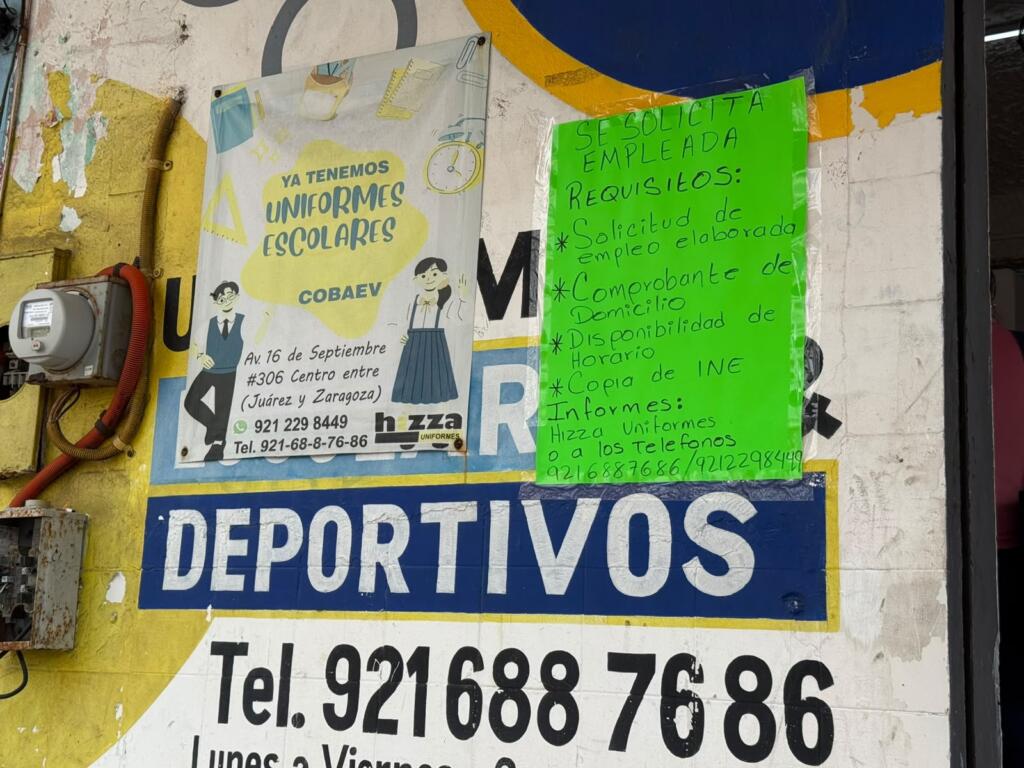 YA TENEMOS
UNIFORMES
ESCOLARES
COBAEV
Av. 16 de Septiembre
#306 Centro entre
(Juárez y Zaragoza)
921 229 8449
Tel. 921-68-8-76-86
hizza
UNIFORMES
SE SOLICITA
EMPLEADA
REQUISITOS:
*Solicitud de
empleo elaborada
*Comprobante de
Domicilio
*Disponibilidad de
Horario
*Copia de INE
Informes:
Hizza Uniformes
o a los Telefonos
9216887686/9212298449
DEPORTIVOS
Tel. 921 688 76 86
Lunes a Viernes